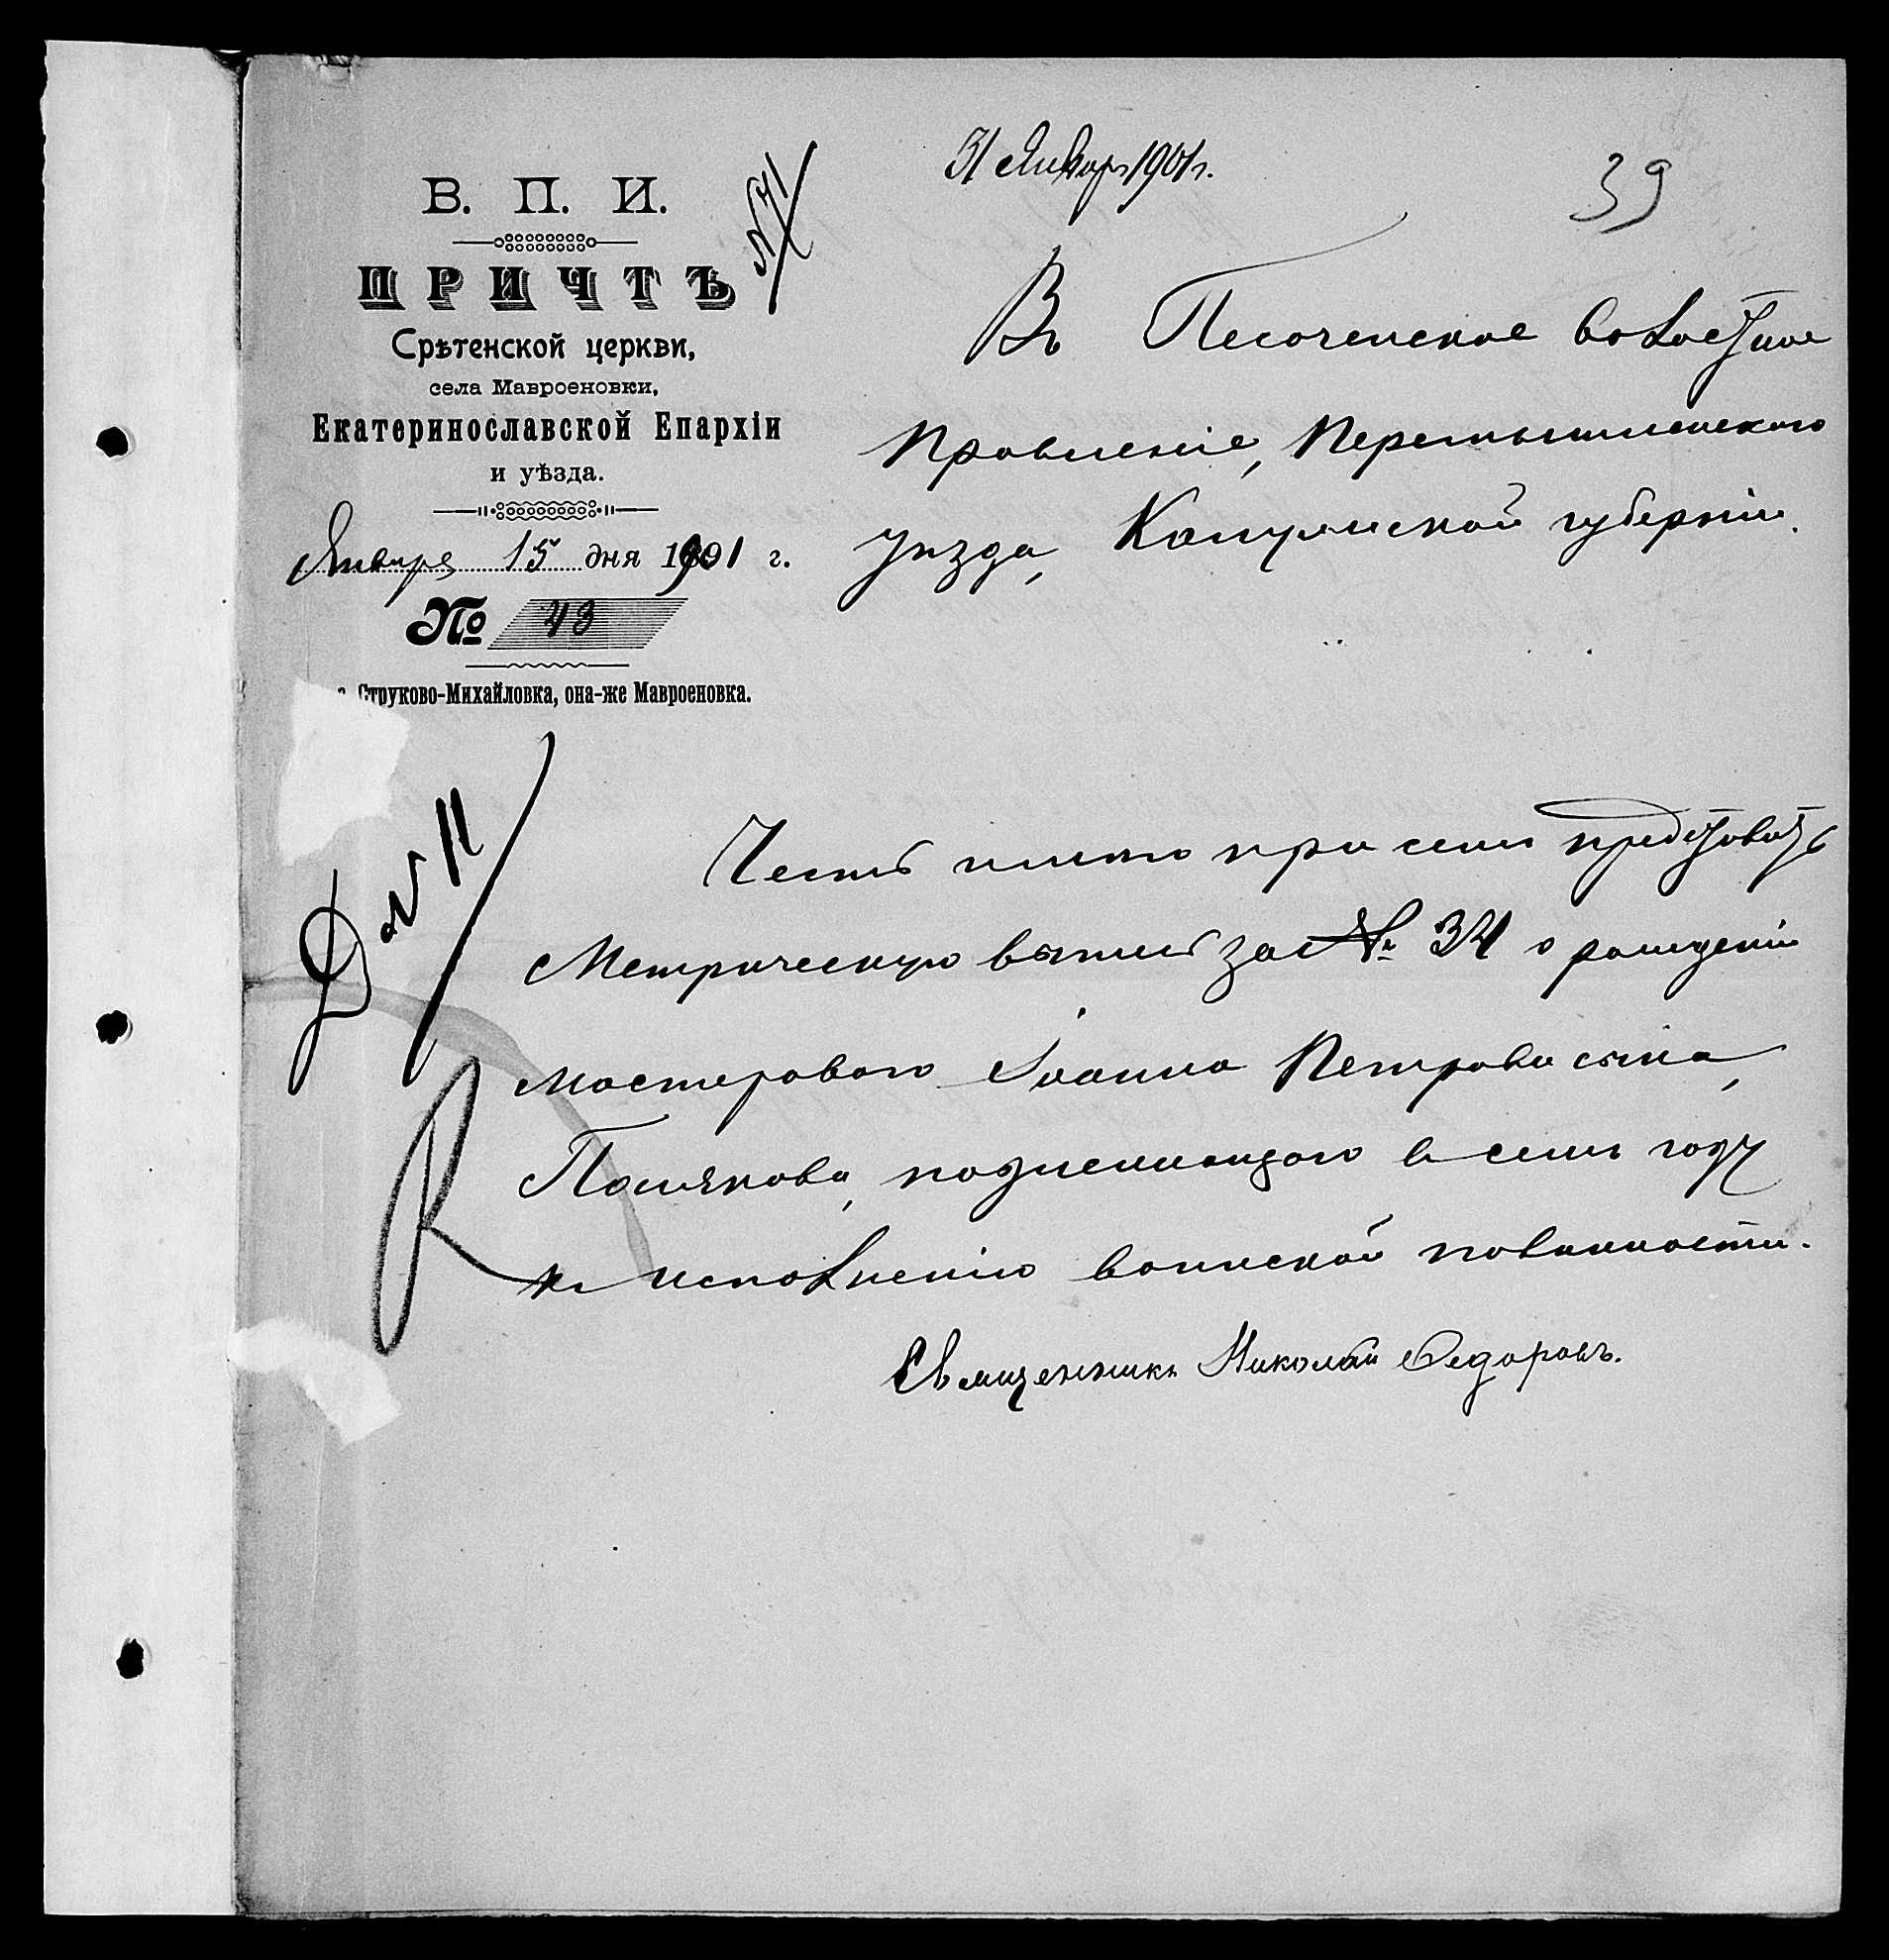 31 Января 1901 г.
39
№ 71
В. П. И.
ПРИЧТЪ
Срѣтенской церкви,
села Мавроеновки,
Екатеринославской Епархіи
и уѣзда.
Января 15 дня 1901 г.
№ 43
с. Струково-Михайловка, она-же Мавроеновка.
Въ Песоченское волостное
Правленіе, Перемышленского
уѣзда, Калужской губерніи.
Д № 11
Честь имѣю при семъ представить
Метрическую выпись за № 34 о рожденіи
мастерового Іоанна Петрова сына,
Полякова, подлежащаго въ семъ году
къ исполненію воинской повинности.
Священникъ Николай Федоровъ.